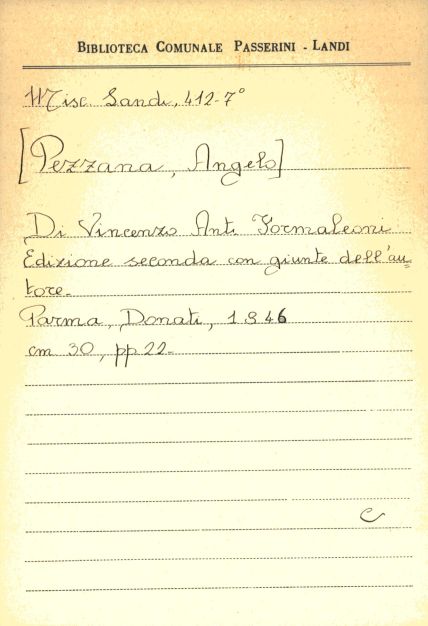 BIBLIOTECA COMUNALE PASSERINI - LANDI
Misc. Landi, 412-7°
[Pezzana, Angelo]
Di Vincenzo Ant. Formaleoni
Edizione seconda con giunte dell'au=
tore.
Parma, Donati, 1846
cm 30, pp 22.
C